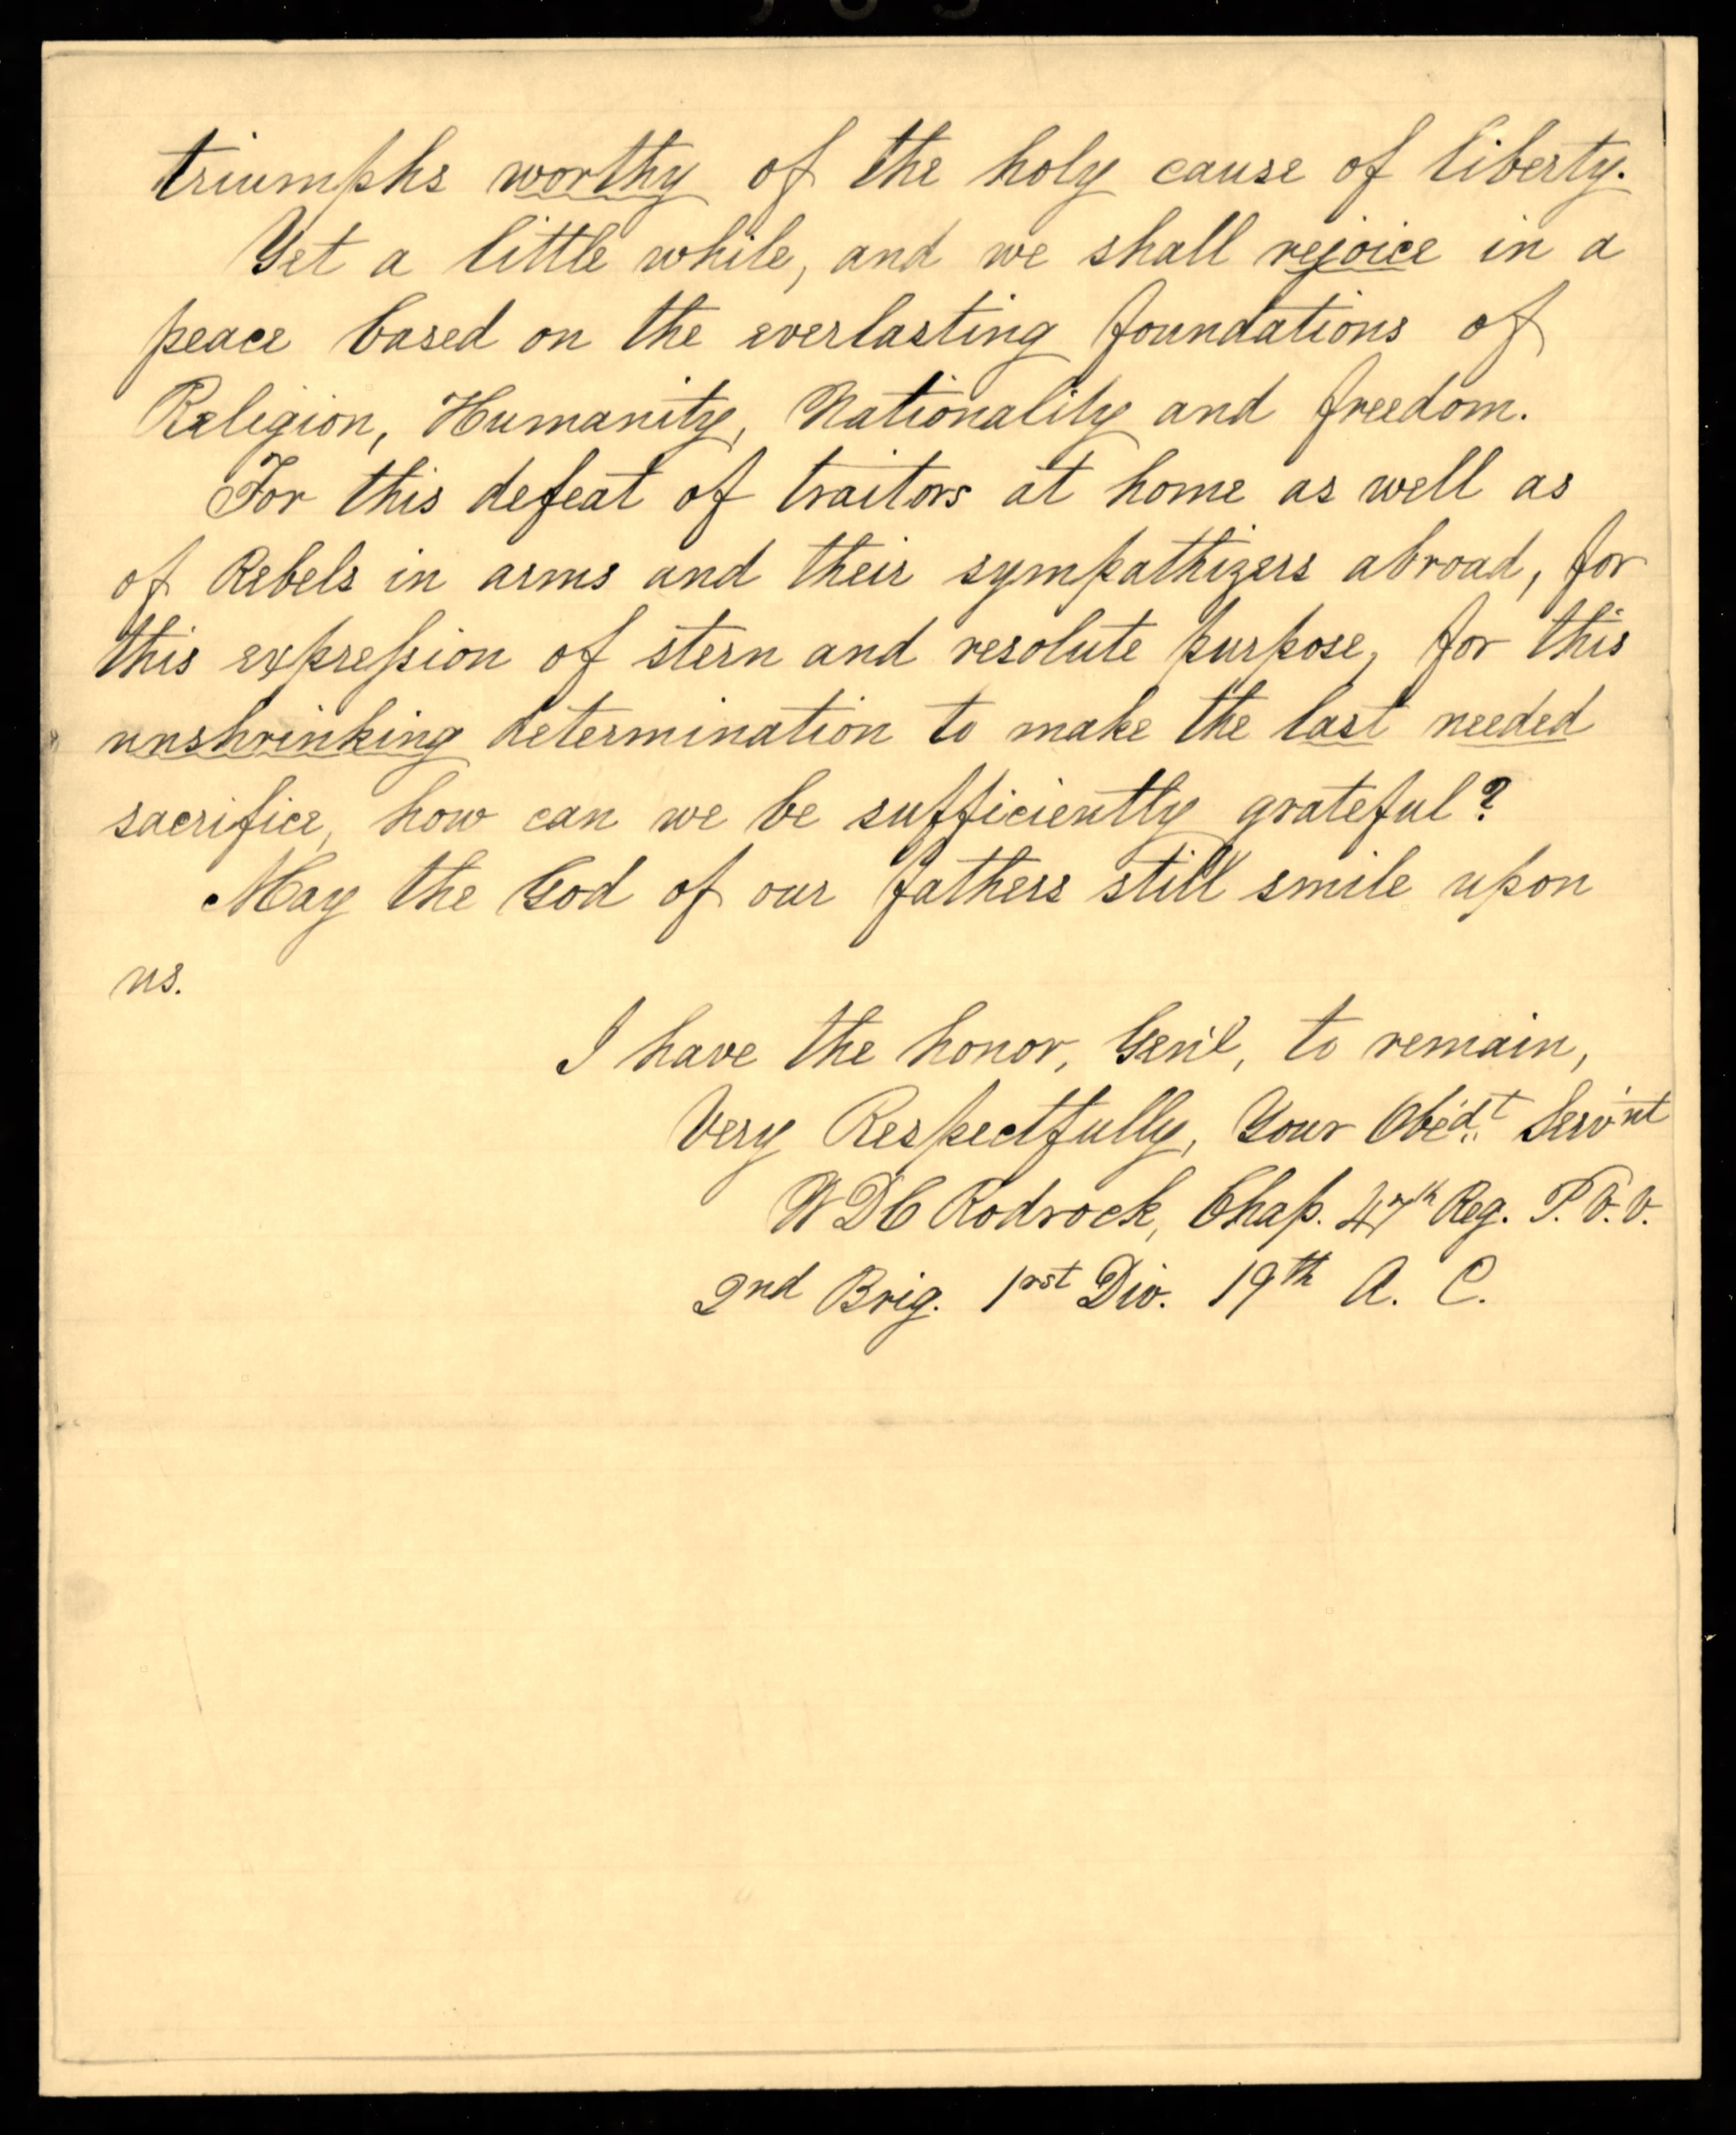 triumphs worthy of the holy cause of liberty.
Yet a little while, and we shall rejoice in a
peace based on the everlasting foundations of
Religion, Humanity, Nationality and freedom.
For this defeat of traitors at home as well as
of Rebels in arms and their sympathizers abroad, for
this expreſsion of stern and resolute purpose, for this
unshrinking determination to make the last needed
sacrifice, how can we be sufficiently grateful?
May the God of our fathers still smile upon
us.
I have the honor, Gen'l, to remain,
Very Respectfully, Your Obe'dt Serv'nt
W D C Rodrock, Chap. 47th Reg. P. V. V.
2nd Brig. 1rst Div. 19th A. C.